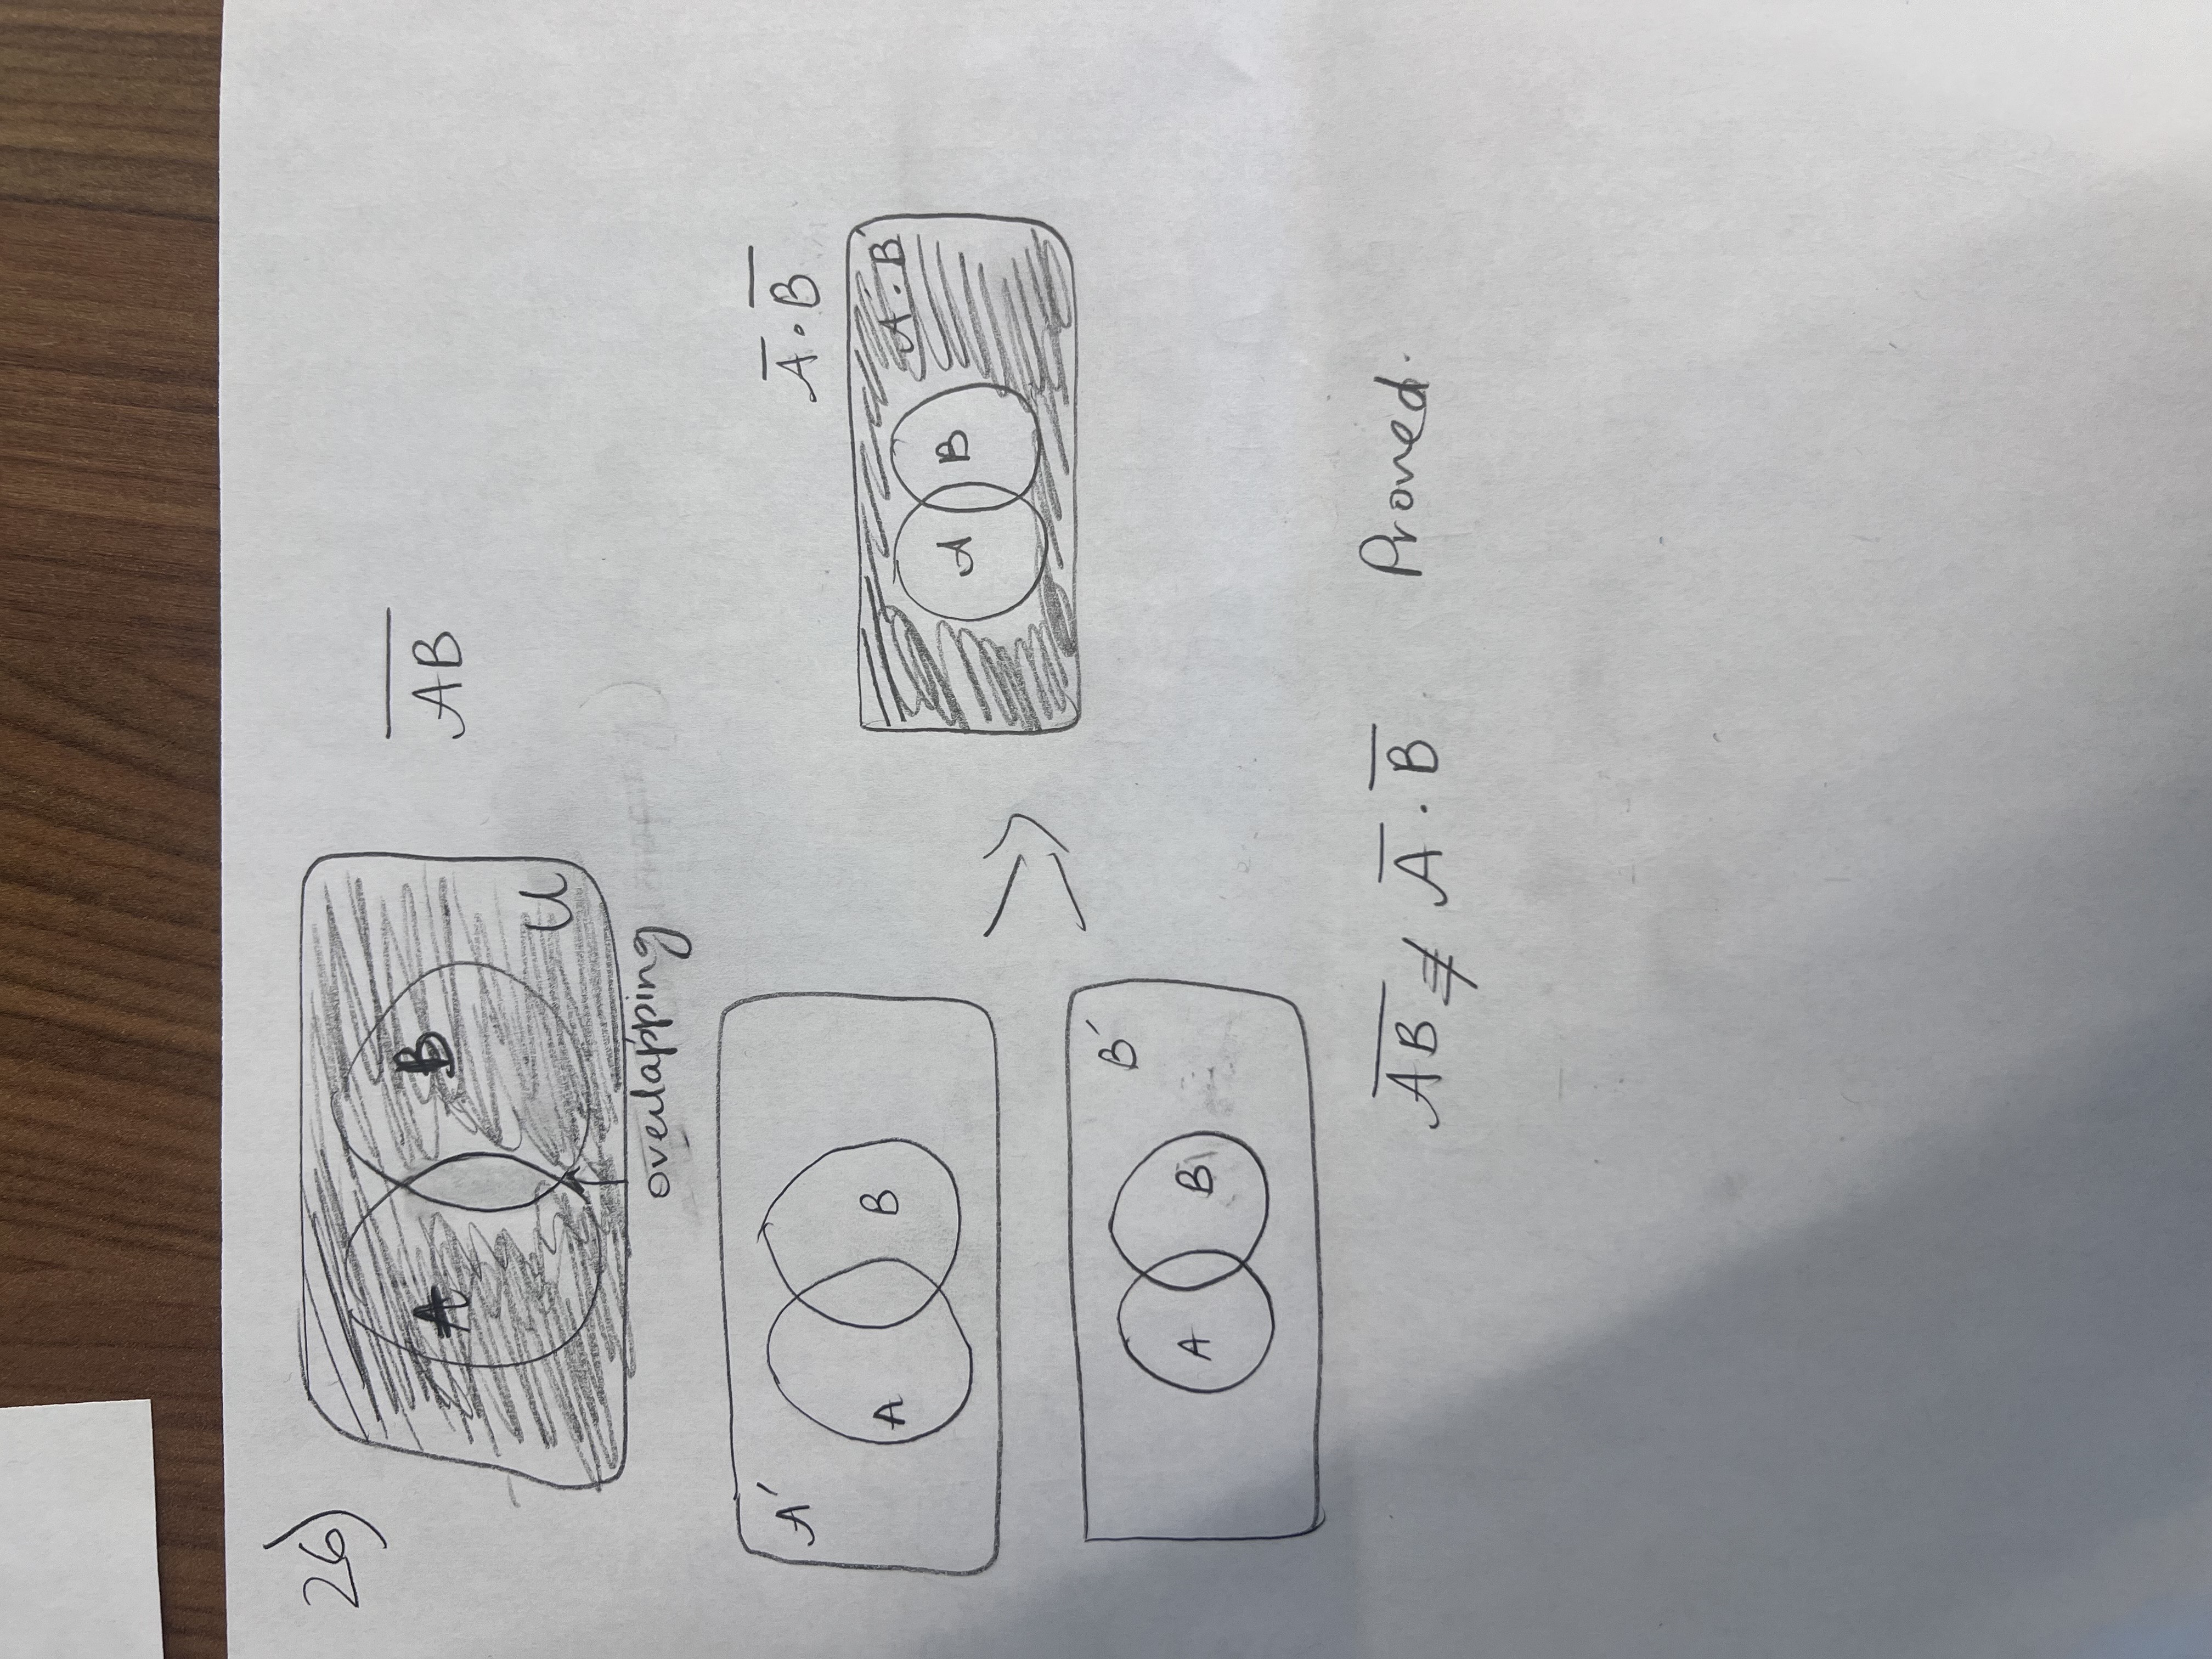 26)
A B
U
overlapping
A̅B̅
A′
A B
B′
A B
A̅ · B̅
A · B
A B
A̅B̅ ≢ A̅ · B̅ Proved.